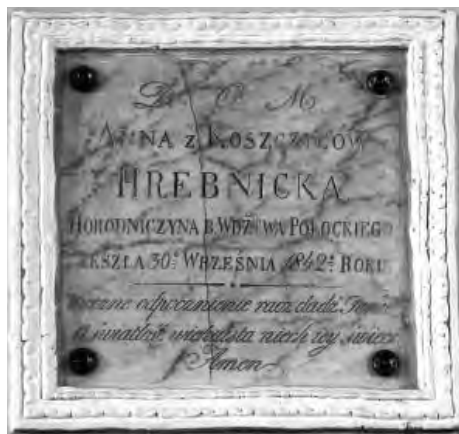 D. O. M.
ANNA Z KOSZCZYCÓW
HREBNICKA
HORODNICZYNA B. WDZTWA POŁOCKIEGO
ZESZŁA 30º WRZEŚNIA 1842º ROKU
Wieczne odpocznienie racz dadź
a światłość wiekuista niech iey świeci
Amen